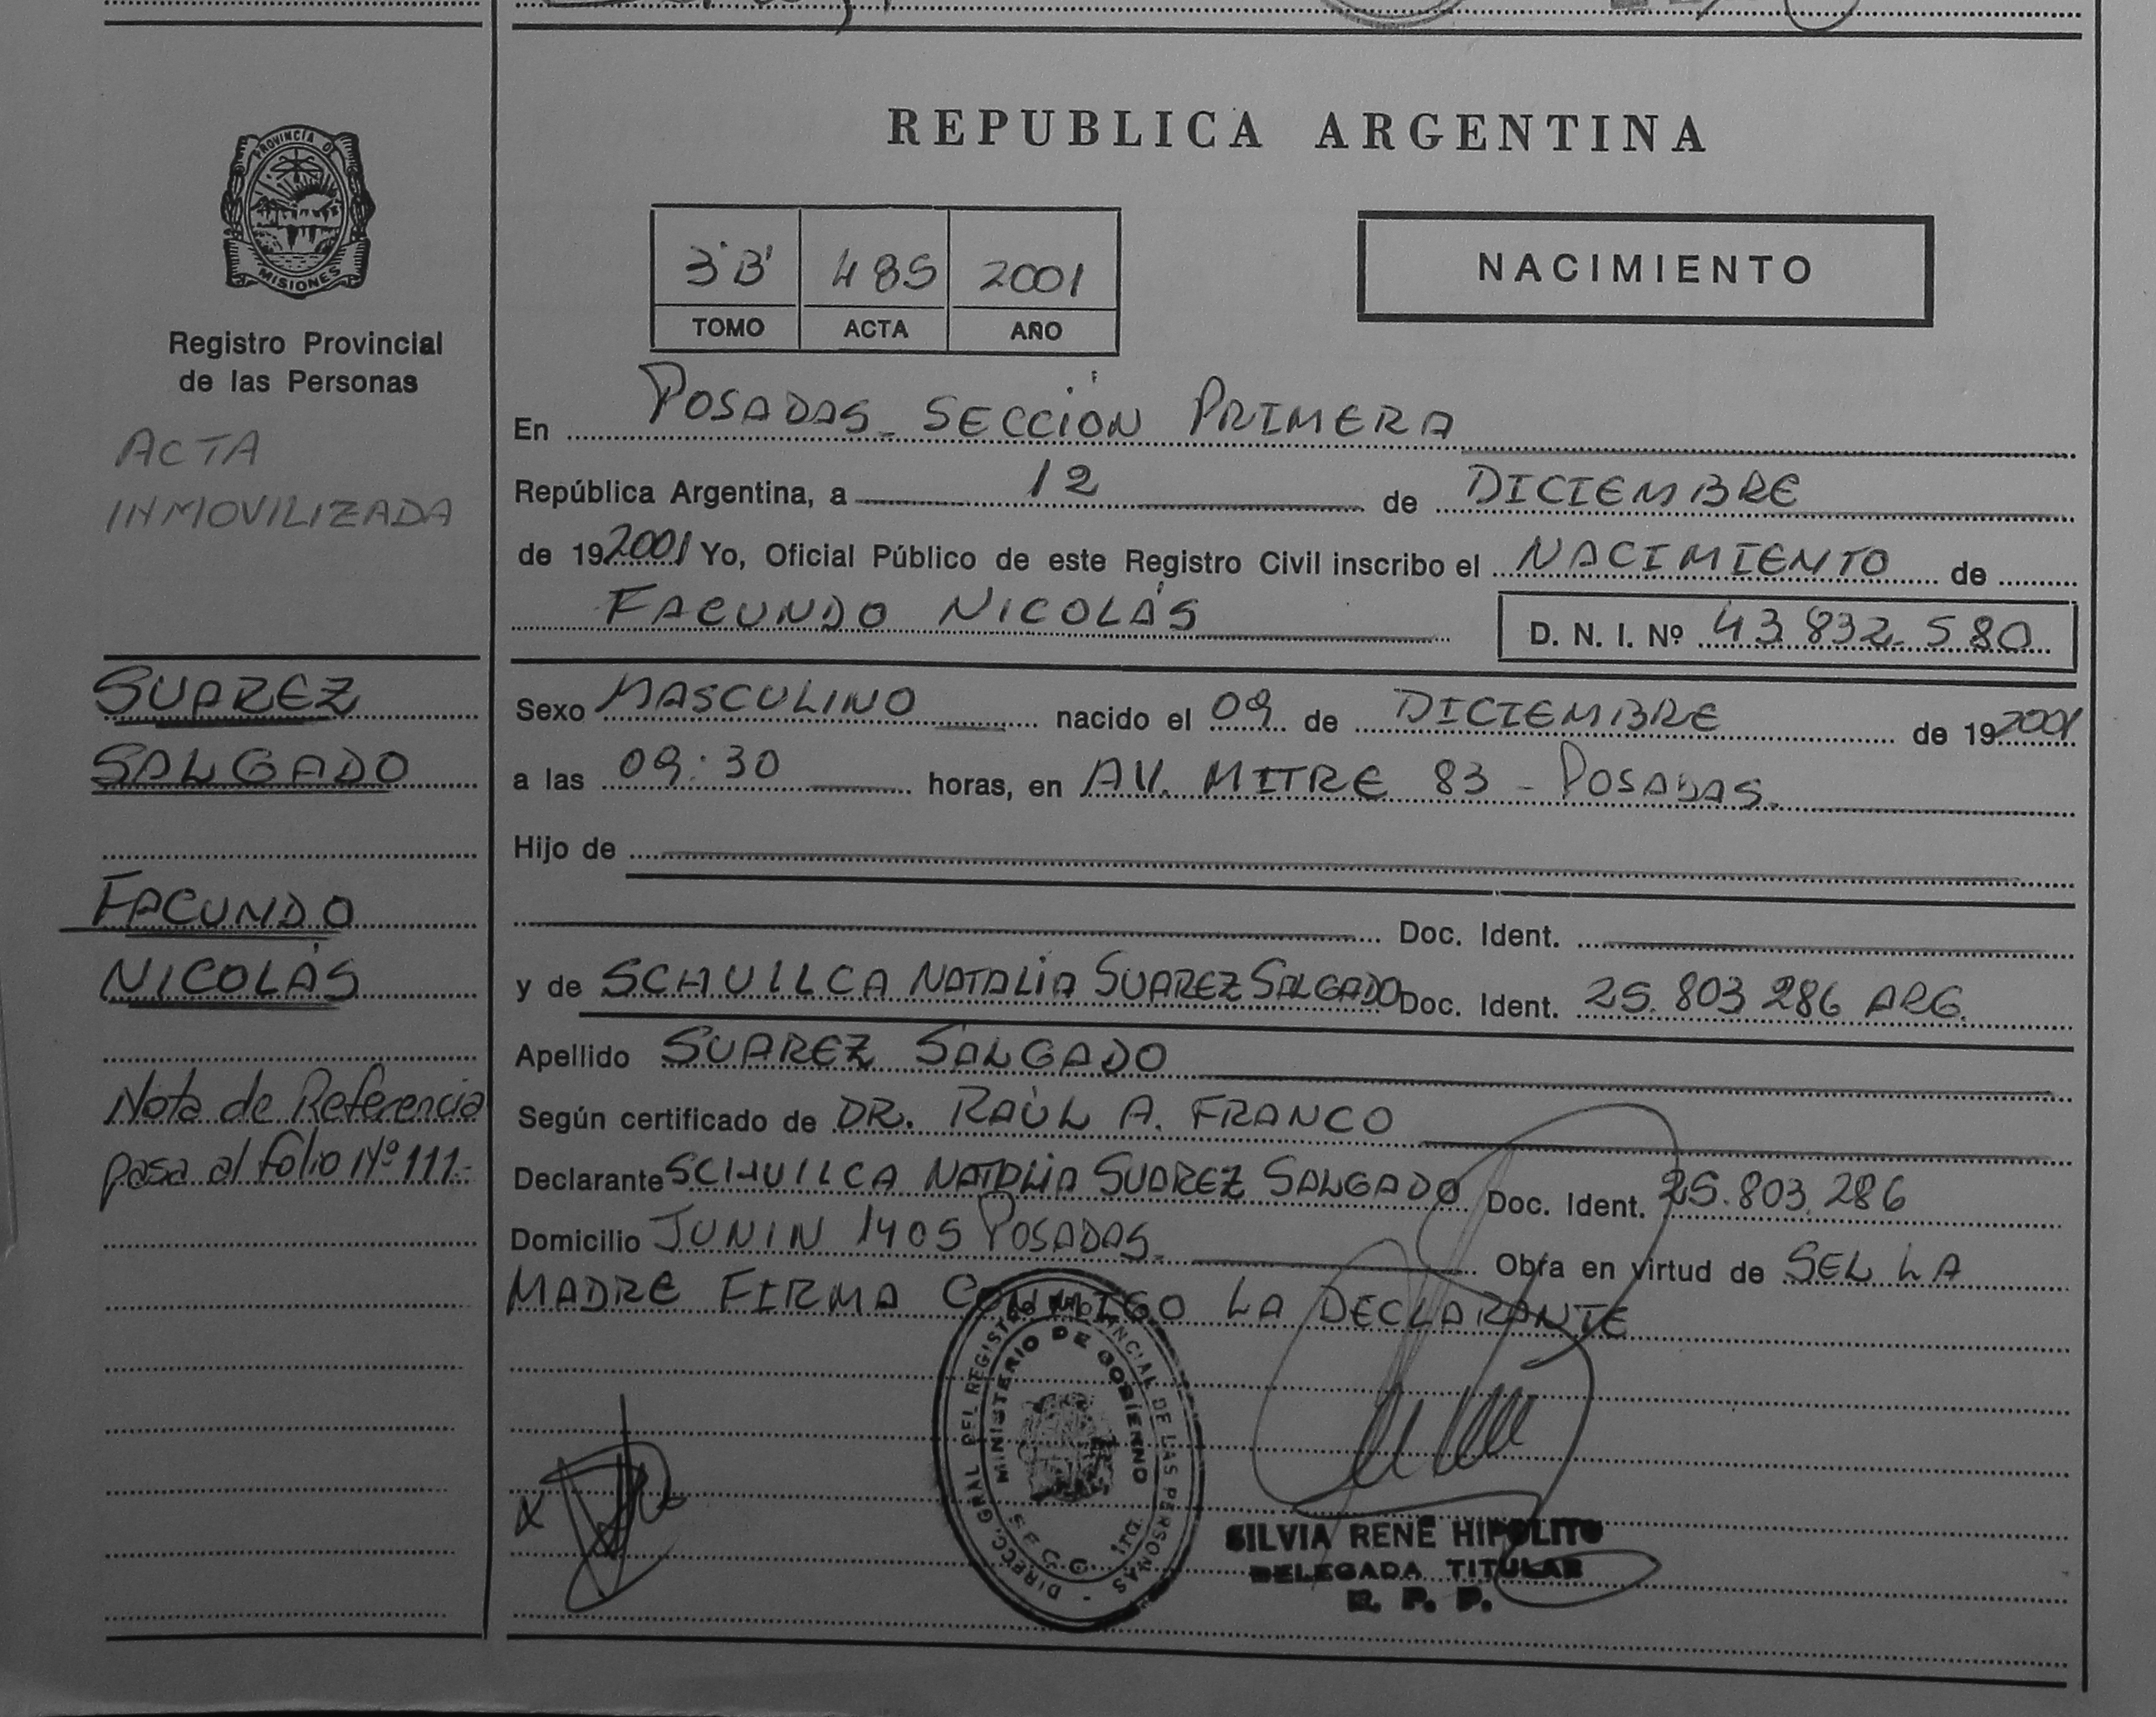 REPUBLICA ARGENTINA
PROVINCIA DE
MISIONES
Registro Provincial
de las Personas
ACTA
INMOVILIZADA
SUAREZ
SALGADO
FACUNDO
NICOLÁS
Nota de Referencia
pasa al folio Nº 111.-
3 "B" 485 2001
TOMO ACTA AÑO
NACIMIENTO
En POSADAS - SECCIÓN PRIMERA
República Argentina, a 12 de DICIEMBRE
de 19 2001 Yo, Oficial Público de este Registro Civil inscribo el NACIMIENTO de
FACUNDO NICOLÁS D. N. I. Nº 43.832.580
Sexo MASCULINO nacido el 09 de DICIEMBRE de 19 2001
a las 09:30 horas, en AV. MITRE 83 - POSADAS.
Hijo de
Doc. Ident.
y de NATALIA SUAREZ SALGADO Doc. Ident. 25.803.286 ARG.
Apellido SUAREZ SALGADO
Según certificado de DR. RAÚL A. FRANCO
Declarante NATALIA SUAREZ SALGADO Doc. Ident. 25.803.286
Domicilio JUNIN 1405 POSADAS. Obra en virtud de SER LA
MADRE FIRMA CONMIGO LA DECLARANTE
DIRECC. GRAL DEL REGISTRO PROVINCIAL DE LAS PERSONAS
MINISTERIO DE GOBIERNO
SILVIA RENE HIPOLITO
DELEGADA TITULAR
R. P. P.